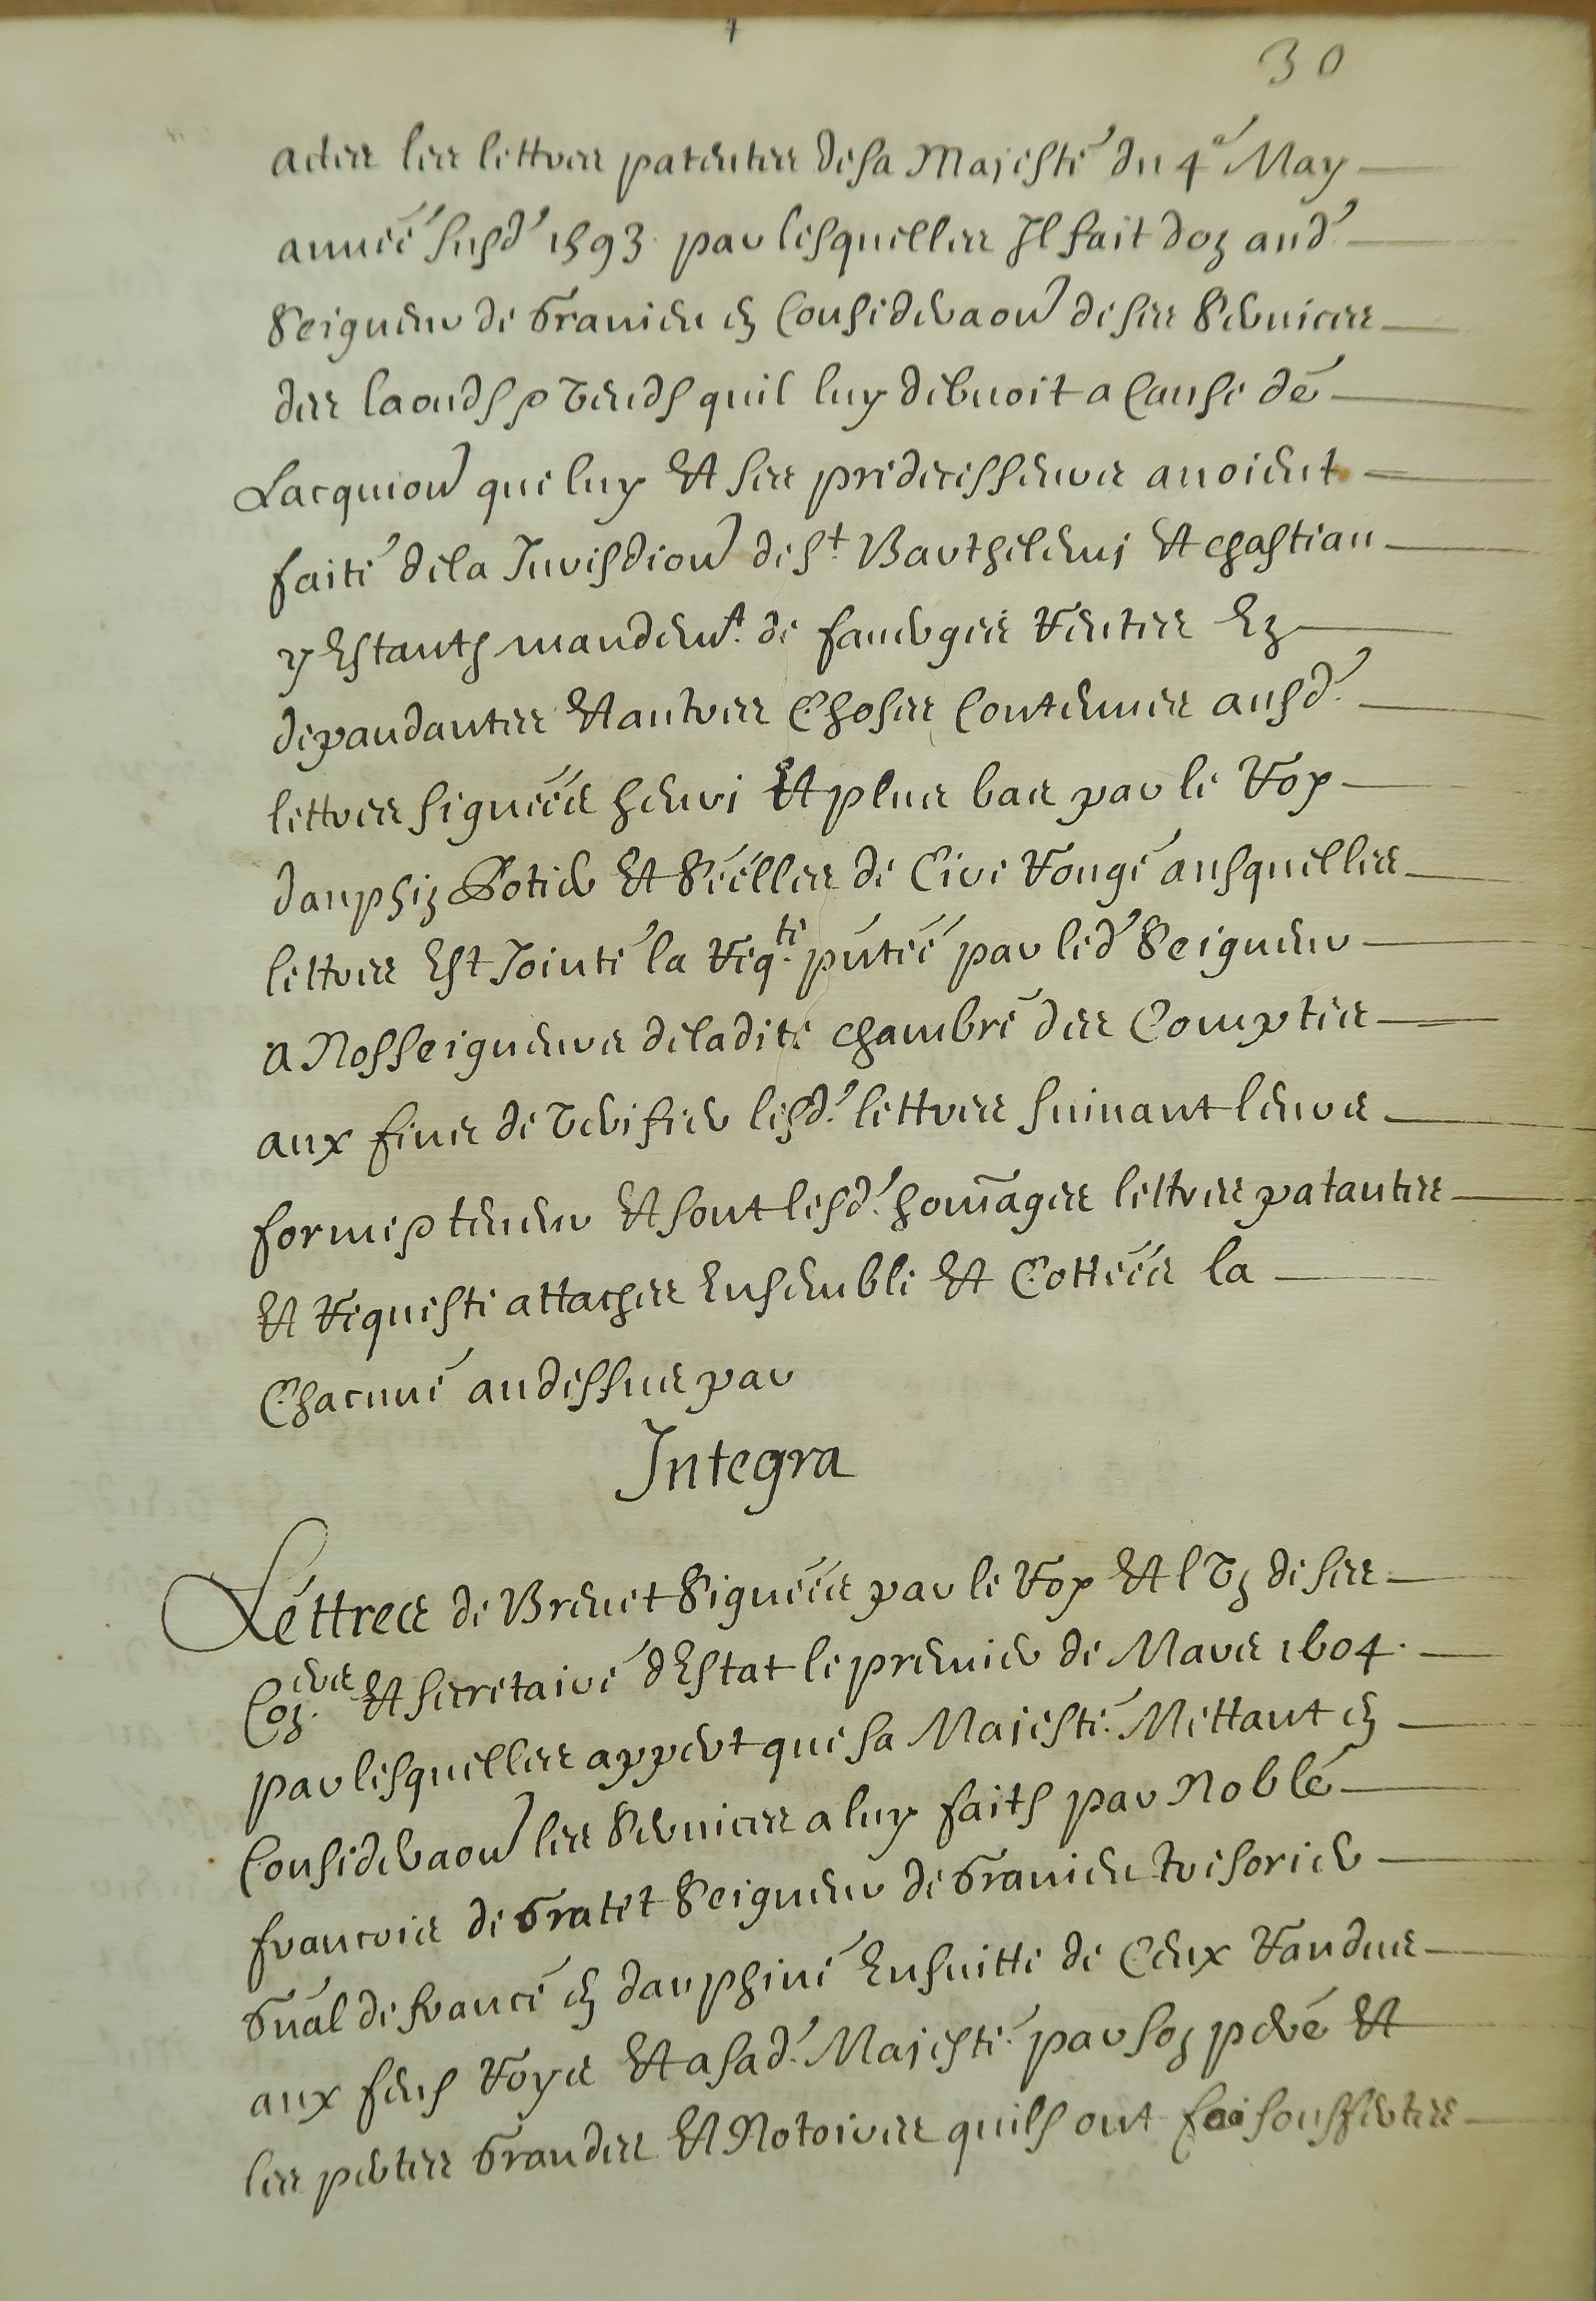 30
actes les lettres patentes de sa Majesté du 4e May
année susd' 1593 par lesquelles Il fait don aud'
Seigneur de Granieu en Consideraon de ses Services
des laouds & vends quil luy debuoit a Cause de
Lacquion que luy Et ses predecesseurs auoient
faite de la Jurisdion de St Barthelemi Et chastian
y Estants mandemt de faverges Rentes Ez
depandantes Et autres Choses Contenues ausd'
lettres signéés henri Et plus bas par le Roy
dauphin Potier Et Séélles de Cire Rouge ausquelles
lettres Est Jointe la Reqte pntéé par led' Seigneur
a Nosseigneurs deladite chambre des Comptes
aux fins de Verifier lesd' lettres suiuant leurs
forme & teneur Et sont lesd' homages lettres patantes
Et Requeste attaches Ensemble Et Cottéés la
Chacune audessus par
Integra
Léttres de Breuet Signéés par le Roy Et l Vn de ses
Coners Et secretaire dEstat le premier de Mars 1604
par lesquelles appert que sa Majesté Mettant en
Consideraon les Services a luy faits par Noble
francois de Gratet Seigneur de Granieu tresorier
Gnal de france en dauphiné Ensuitte de Ceux Randus
aux feus Roys Et a sad' Majesté par son pere Et
les pertes Grandes Et Notoires quils ont souffertes